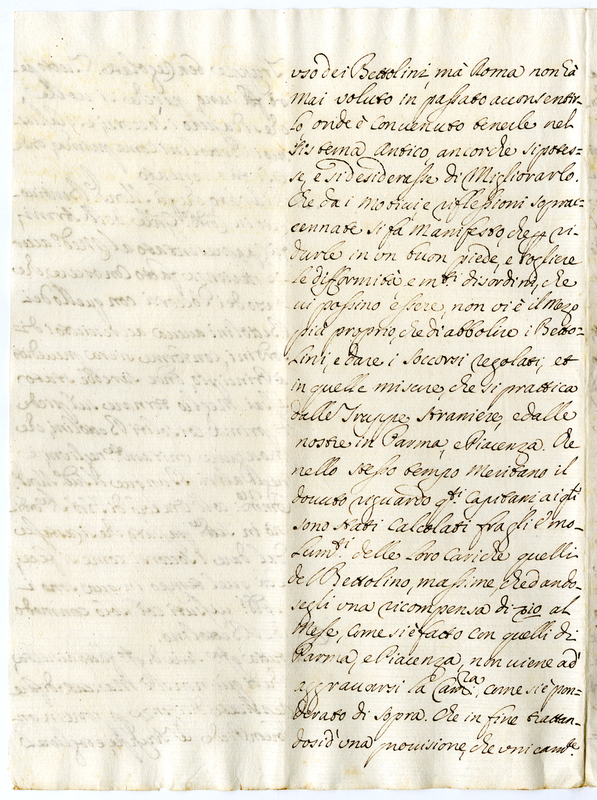 uso dei Bettolini, mà Roma non hà
mai voluto in passato acconsentir-
lo onde è convenuto tenerle nel
sistema antico ancorche si potes-
se, e si desiderasse di Migliorarlo.
Che da i motivi e riflessioni sopra-
cennate si fà Manifesto, che p ri-
durle in un buon piede, e togliere
le difformità e mti disordini, che
vi possino essere, non vi è il Mezo
più proprio, che di abbolire i Betto-
lini, e dare i soccorsi regolati, et
in quelle misure, che si prattica
dalle Truppe straniere, e dalle
nostre in Parma, e Piacenza. Che
nello stesso tempo Meritano il
dovuto riguardo qti Capitani ai qli
sono stati calcolati fra gli emo-
lumti delle loro cariche quelli
del Bettolino, massime, che dando-
segli una ricompensa di al
Mese, come si è fatto con quelli di
Parma, e Piacenza, non viene ad
aggravarsi la Camra, come si è pon-
derato di sopra. Che in fine trattan-
dosi d'una provisione, che unicamte